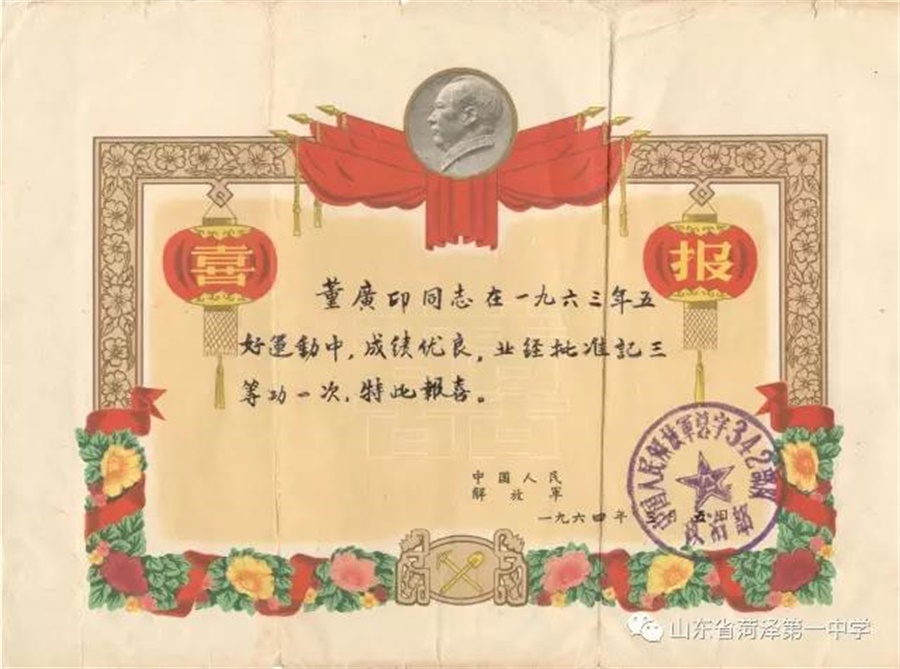 喜 报
董廣印同志在一九六三年五
好運動中，成绩优良，业经批准記三
等功一次，特此報喜。
中国人民
解放軍
一九六四年 月五日
中国人民解放軍总字342部队
政治部
山东省菏泽第一中学